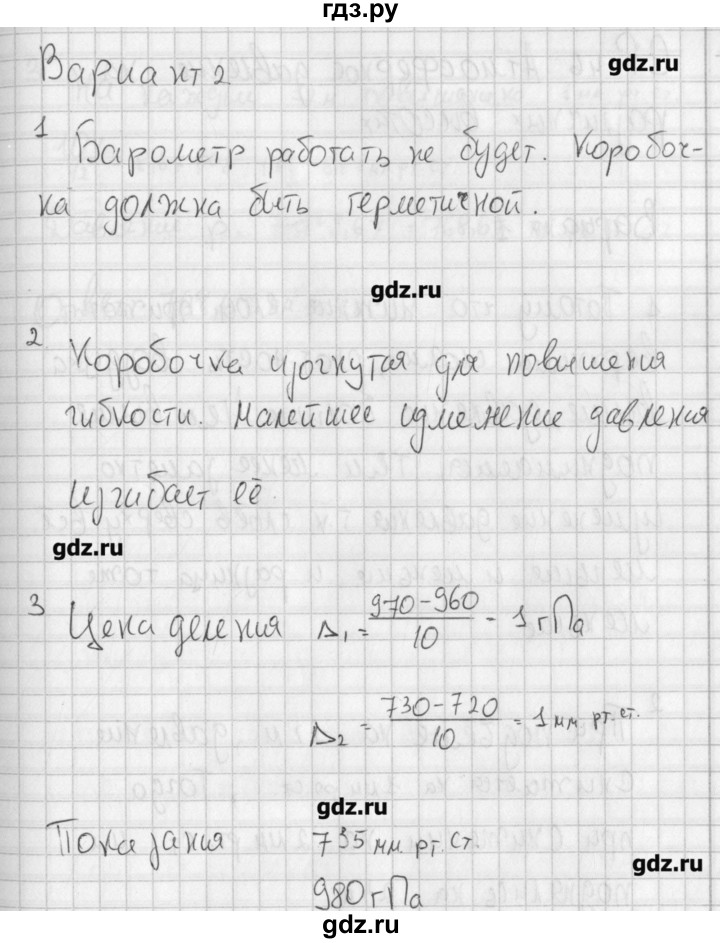 гдз.ру
Вариант 2
gdz.ru
1 Барометр работать не будет. Коробоч-
ка должна быть герметичной.
gdz.ru
2 Коробочка изогнутая для повышения
гибкости. Малейшее изменение давления
изгибает её.
gdz.ru
3 Цена деления Δ₁ = (970-960)/10 = 1 гПа
Δ₂ = (730-720)/10 = 1 мм рт. ст.
gdz.ru
Показания 735 мм рт. ст.
gdz.ru
980 гПа
gdz.ru